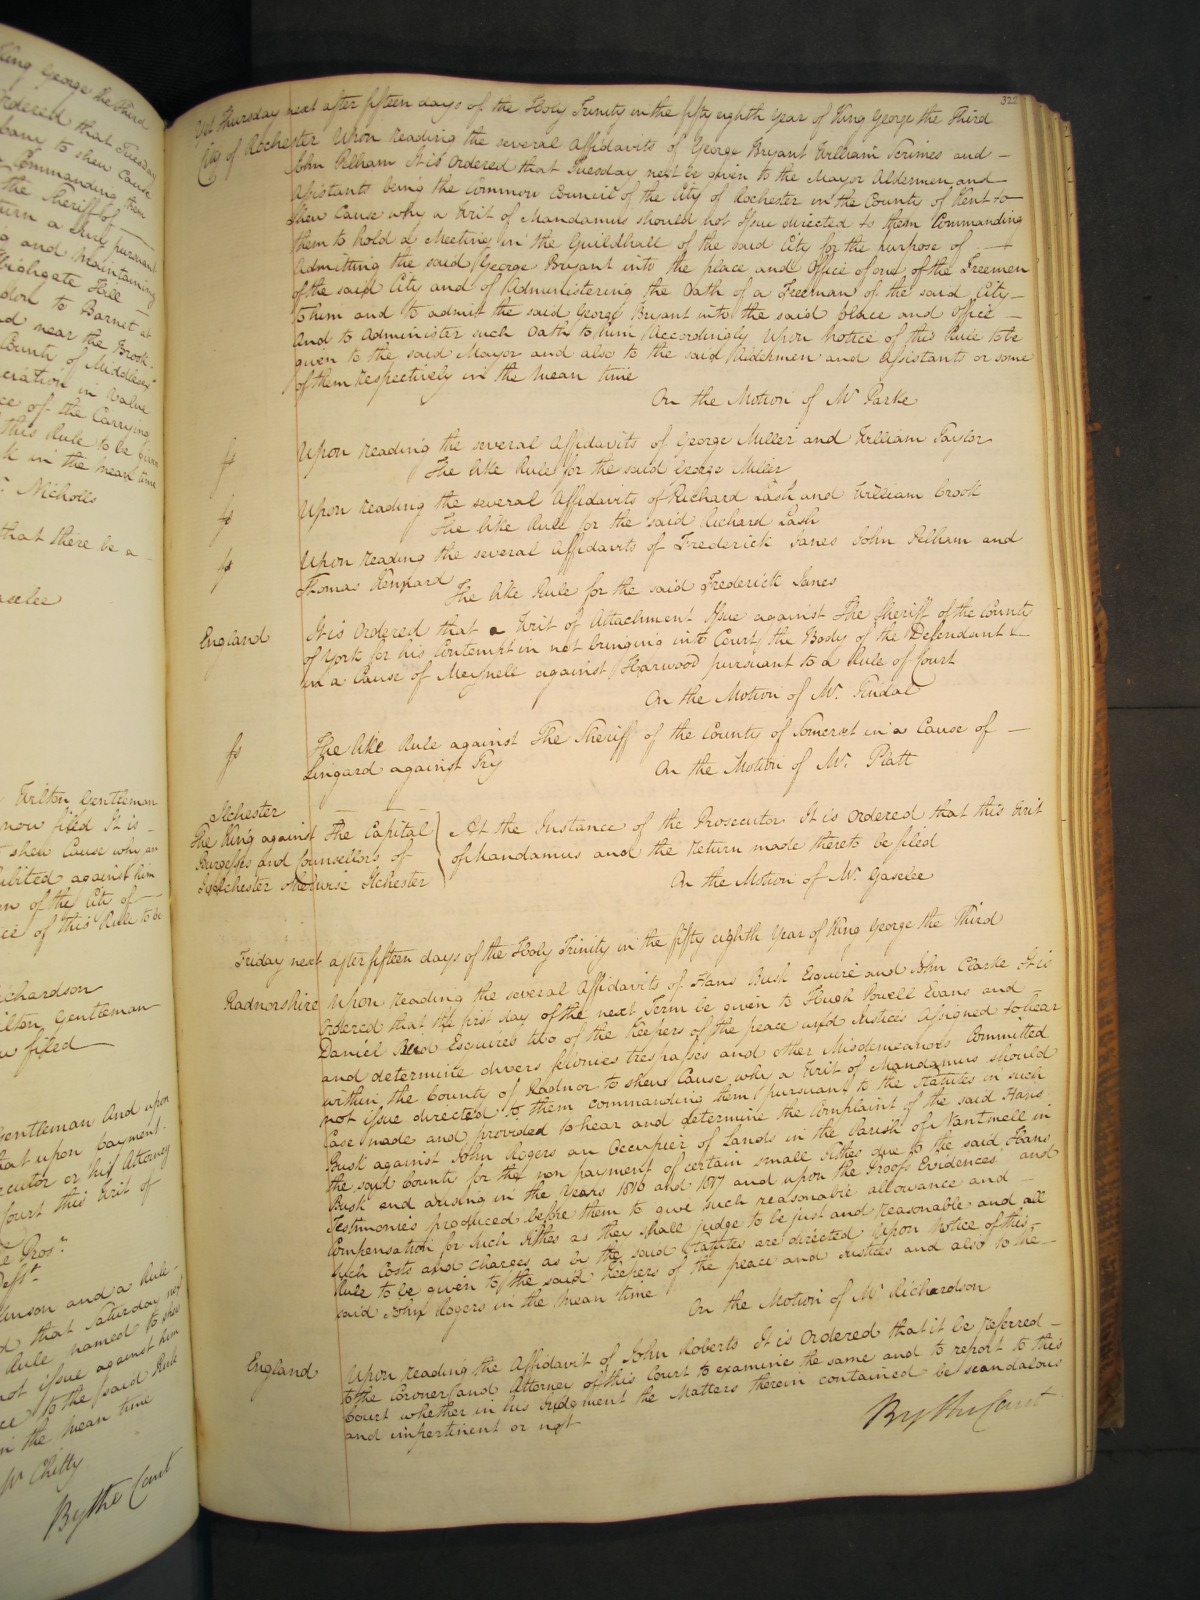 322
Yet Thursday next after fifteen days of the Holy Trinity in the fifty eighth Year of King George the Third
City of Rochester Upon reading the several Affidavits of George Bryant William Scrimes and
John Pelham It is Ordered that Tuesday next be given to the Mayor Aldermen and
Assistants being the Common Council of the City of Rochester in the County of Kent to
shew Cause why a Writ of Mandamus should not Issue directed to them Commanding
them to hold a Meeting in the Guildhall of the said City for the purpose of
Admitting the said George Bryant into the place and Office of one of the Freemen
of the said City and of Administering the Oath of a Freeman of the said City
to him and to admit the said George Bryant into the said place and Office
And to Administer such Oath to him Accordingly Upon Notice of this Rule to be
given to the said Mayor and also to the said Aldermen and Assistants or some
of them respectively in the mean time
On the Motion of Mr. Parke
Upon reading the several Affidavits of George Miller and William Taylor
The like Rule for the said George Miller
Upon reading the several Affidavits of Richard Lash and William Crook
The like Rule for the said Richard Lash
Upon reading the several Affidavits of Frederick Janes John Pelham and
Thomas Kennard
The like Rule for the said Frederick Janes
England It is Ordered that a Writ of Attachment Issue against The Sheriff of the County
of York for his Contempt in not bringing into Court the Body of the Defendant
in a Cause of Meynell against Harwood pursuant to a Rule of Court
On the Motion of Mr. Tindal
The like Rule against The Sheriff of the County of Somerset in a Cause of
Lingard against Fry
On the Motion of Mr. Platt
Ilchester
The King against The Capital
Burgesses and Counsellors of
Ivelchester otherwise Ilchester
At the Instance of the Prosecutor It is Ordered that this Writ
of Mandamus and the Return made thereto be filed
On the Motion of Mr. Gaselee
Friday next after fifteen days of the Holy Trinity in the fifty eighth Year of King George the Third
Radnorshire Upon reading the several Affidavits of Hans Busk Esquire and John Clarke It is
Ordered that the first day of the next Term be given to Hugh Powell Evans and
Daniel Reed Esquires two of the Keepers of the peace and Justices Assigned to hear
and determine divers felonies trespasses and other Misdemeanors Committed
within the County of Radnor to shew Cause why a Writ of Mandamus should
not issue directed to them commanding them pursuant to the statutes in such
Case made and provided to hear and determine the Complaint of the said Hans
Busk against John Rogers an Occupier of Lands in the Parish of Nantmell in
the said County for the non payment of certain small tithes due to the said Hans
Busk and arising in the Years 1816 and 1817 and upon the Proofs Evidences and
Testimonies produced before them to give such reasonable allowance and
Compensation for such tithes as they shall judge to be just and reasonable and all
such Costs and Charges as by the said Statutes are directed Upon Notice of this
Rule to be given to the said Keepers of the peace and Justices and also to the
said John Rogers in the mean time
On the Motion of Mr. Richardson
England Upon reading the Affidavit of John Roberts It is Ordered that it be referred
to the Coroner and Attorney of this Court to examine the same and to report to this
Court whether in his Judgment the Matters therein contained be scandalous
and impertinent or not
By the Court